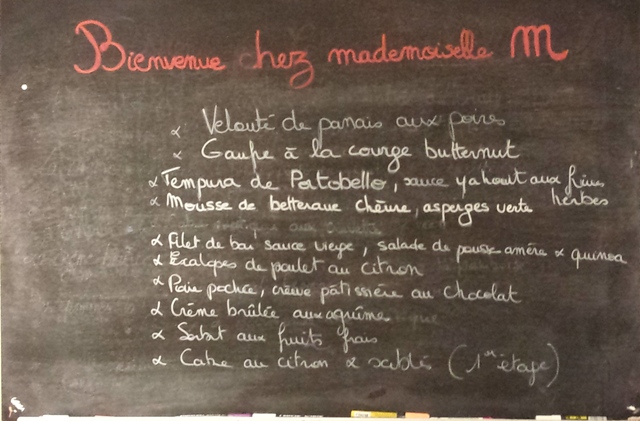 Bienvenue chez mademoiselle M
∝ Velouté de panais aux poires
∝ Gaufre à la courge butternut
∝ Tempura de Portobello, sauce yahourt aux fines herbes
∝ Mousse de betterave chèvre, asperges verte
∝ Filet de bar sauce vierge, salade de pousse amère ∝ quinoa
∝ Escalopes de poulet au citron
∝ Poire pochée, crème pâtissière au chocolat
∝ Crème brûlée aux agrume
∝ Sorbet aux fruits frais
∝ Cake au citron ∝ sablés (1er étage)